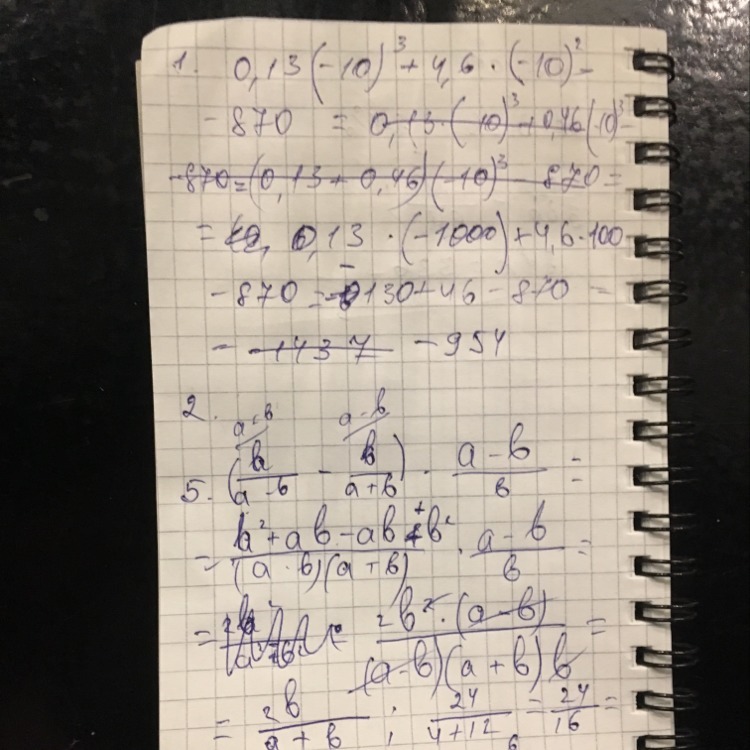 1. 0,13(-10)³ + 4,6 · (-10)² -
- 870 = 0,13·(-10)³ + 0,46(10)³ -
-870 = (0,13 + 0,46)(-10)³ - 870 =
= 0,13 · (-1000) + 4,6·100
- 870 = -130 + 46 - 870 =
- -1437 -954
2.
a+b a-b
5. (b/(a-b) - b/(a+b)) · (a-b)/b =
= (b² + ab - ab + b²)/((a-b)(a+b)) · (a-b)/b =
= (2b² · (a-b))/((a-b)(a+b)b) =
= 2b/(a+b) ; 24/(4+12) = 24/16 =
6